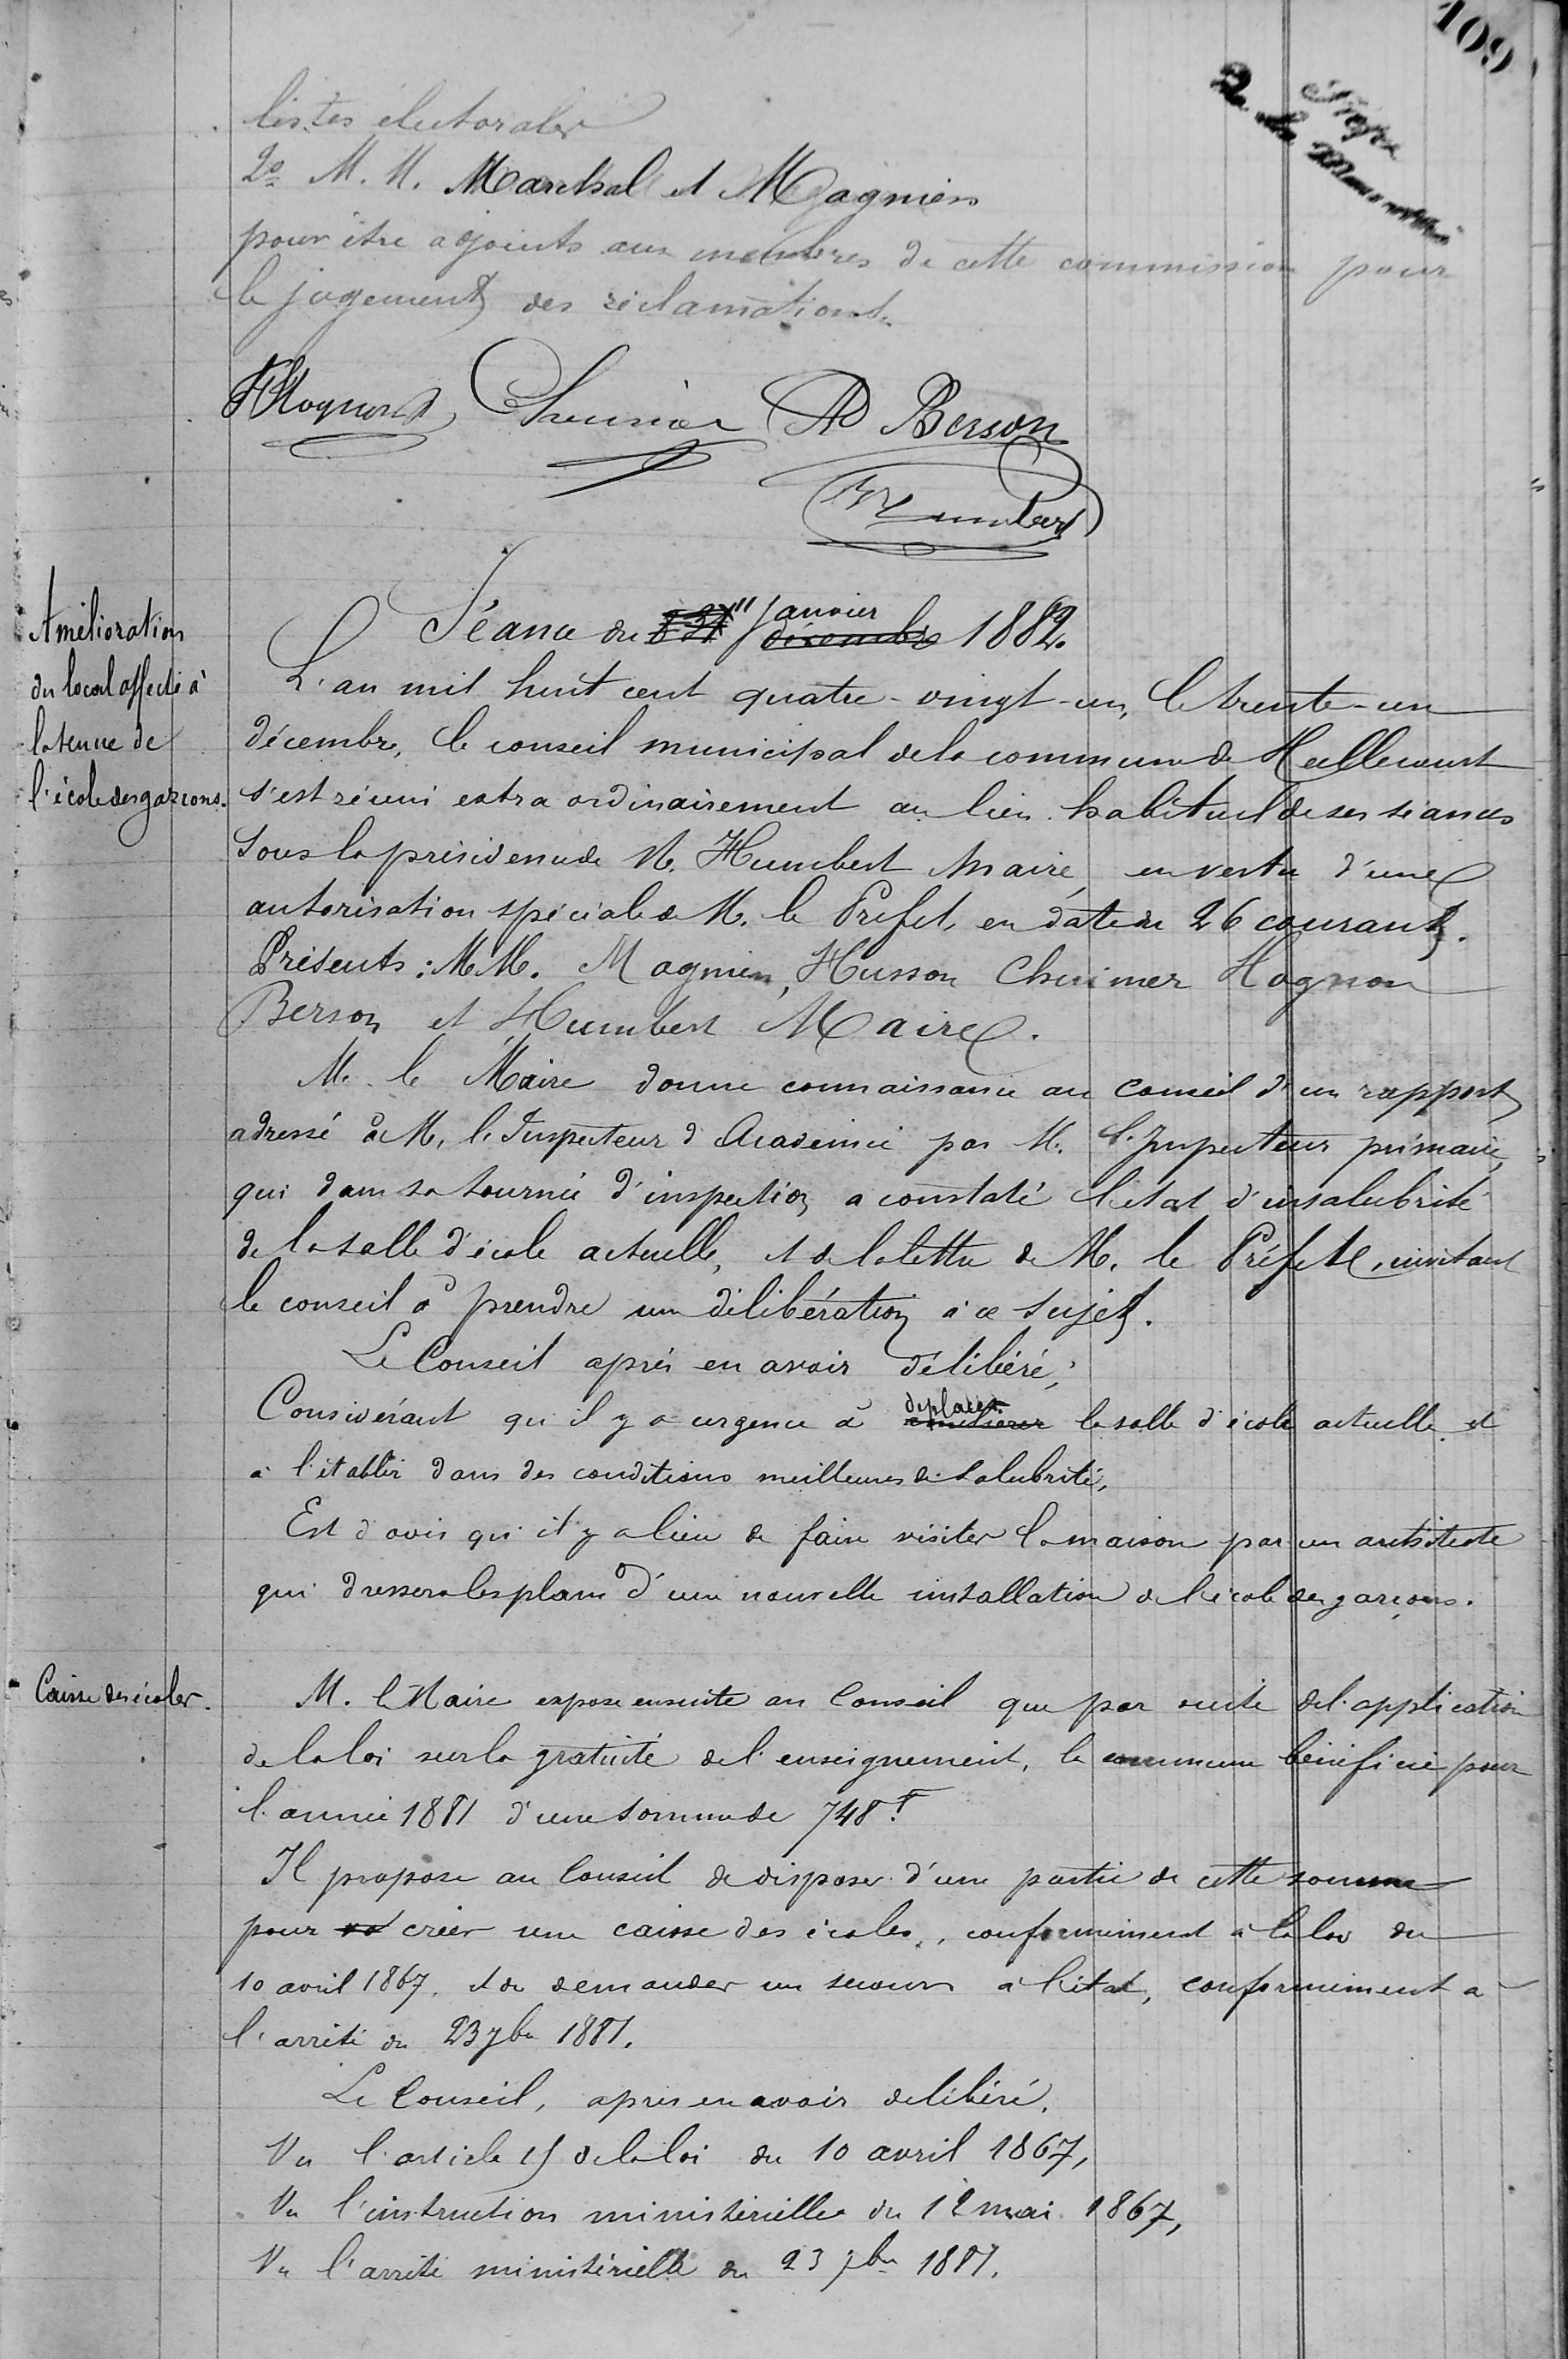 109
listes électorales
2º M. M. Marchal et Magnien
pour être adjoints aux membres de cette commission pour
le jugement des réclamations.
Hognon Chennier AD Berson
Humbert
Amélioration
du local affecté à
la tenue de
l'école des garçons.
Séance du 31 janvier décembre 1882.
L'an mil huit cent quatre-vingt-un, le trente-un
décembre, le conseil municipal de la commune de Heillecourt
s'est réuni extraordinairement au lieu habituel de ses séances
sous la présidence de M. Humbert Maire, en vertu d'une
autorisation spéciale de M. le Préfet, en date du 26 courant.
Présents : MM. Magnien, Husson Hognon
Berson et Humbert Maire.
M. le Maire donne connaissance au conseil d'un rapport
adressé à M. l'Inspecteur d'Académie par M. l'Inspecteur primaire,
qui dans sa tournée d'inspection a constaté l'état d'insalubrité
de la salle d'école actuelle, et de la lettre de M. le Préfet, invitant
le conseil à prendre une délibération à ce sujet.
Le Conseil après en avoir délibéré,
Considérant qu'il y a urgence à déplacer la salle d'école actuelle et
à l'établir dans des conditions meilleures de salubrité,
Est d'avis qu'il y a lieu de faire visiter la maison par un architecte
qui dressera les plans d'une nouvelle installation de l'école des garçons.
Caisse des écoles.
M. le Maire expose ensuite au Conseil que par suite de l'application
de la loi sur la gratuité de l'enseignement, la commune bénéficie pour
l'année 1881 d'une somme de 748 f.
Il propose au Conseil de disposer d'une partie de cette somme
pour créer une caisse des écoles, conformément à la loi du
10 avril 1867, et de demander un secours à l'état, conformément à
l'arrêté du 23 7bre 1881.
Le Conseil, après en avoir délibéré.
Vu l'article 15 de la loi du 10 avril 1867,
Vu l'instruction ministérielle du 12 mai 1867,
Vu l'arrêté ministérielle du 23 7bre 1881.